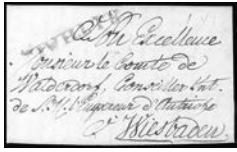 A Son Excéllence
Monsieur le Comte de
Walderdorf, Conseiller Int.
de S. M. l'Empereur d'Autriche
à Wiesbaden